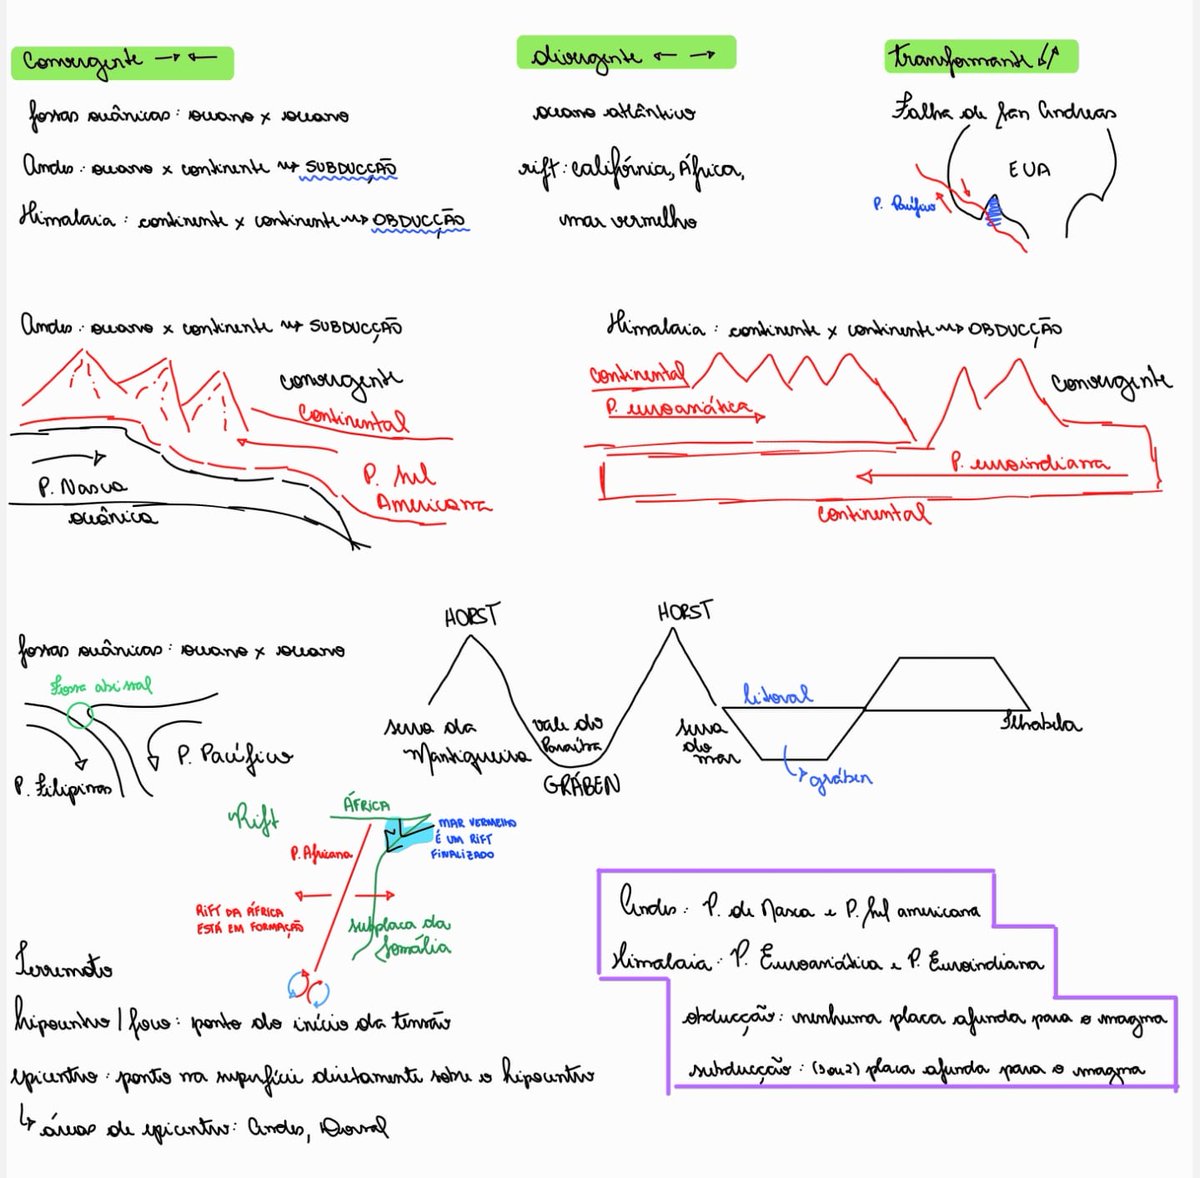 Convergente → ←
fossas oceânicas: oceano x oceano
Andes: oceano x continente → SUBDUCÇÃO
Himalaia: continente x continente → OBDUCÇÃO
divergente ← →
oceano atlântico
rift: califórnia, África,
mar vermelho
transformante ↓↑
Falha de San Andreas
EUA
P. Pacífico
Andes: oceano x continente → SUBDUCÇÃO
convergente
Continental
P. Sul
Americana
P. Nasca
oceânica
Himalaia: continente x continente → OBDUCÇÃO
Continental
P. euroasiática
convergente
P. euroindiana
continental
fossas oceânicas: oceano x oceano
Fossa abissal
P. Pacífico
P. Filipinas
HORST
HORST
serra da
Mantiqueira
vale do
Paraíba
GRÁBEN
serra
do
mar
litoral
gráben
Ilhabela
Rift
ÁFRICA
P. Africana
MAR VERMELHO
É UM RIFT
FINALIZADO
RIFT DA ÁFRICA
ESTÁ EM FORMAÇÃO
subplaca da
Somália
Andes: P. de Nasca e P. Sul americana
Himalaia: P. Euroasiática e P. Euroindiana
obducção: nenhuma placa afunda para o magma
subducção: (1 ou 2) placa afunda para o magma
Terremoto
hipocentro / foco: ponto do início da tensão
epicentro: ponto na superfície diretamente sobre o hipocentro
↳ áreas de epicentro: Andes,